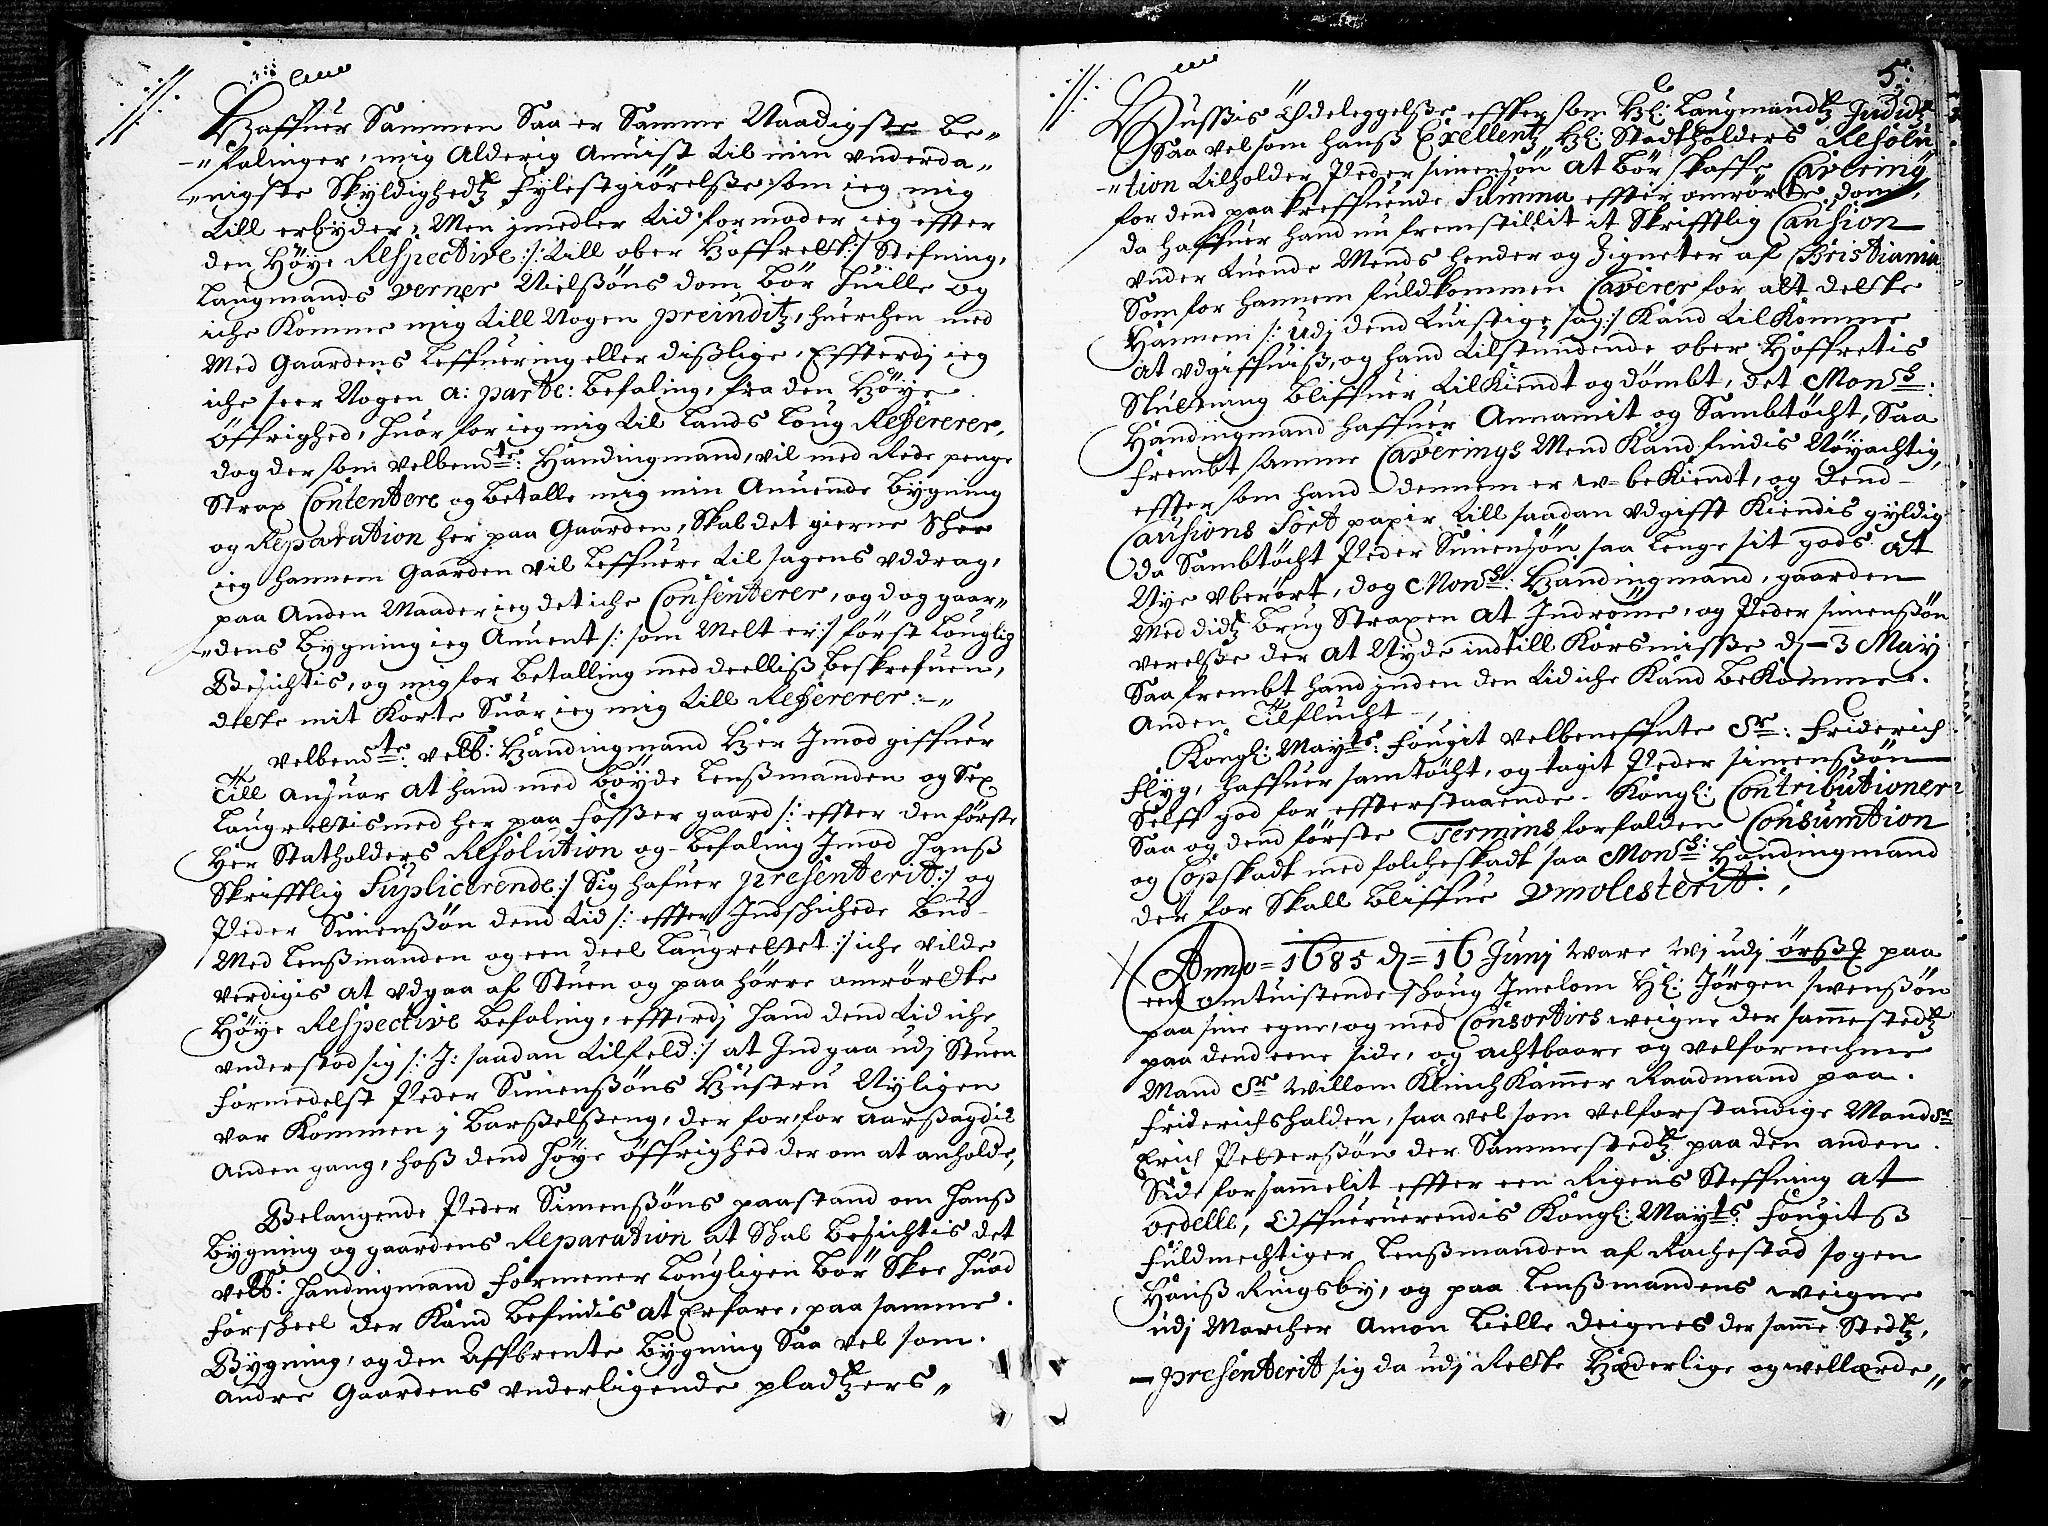 Haffuer Sammen Saa er Samme Naadigste be-
falinger, mig Alderig Anuist til min vnderda-
nigste Skyldighedtz fylestgiörelsse som ieg mig
till erbyder, Men jmedler tid formoder ieg effter
den Höye Respective /: till ober Hoffrett :/ Stefning,
Laugmands Verner Nielssöns dom bör huille og
iche Komme mig till Nogen preiuditz, huerchen med
Med Gaardens leffuering eller disslige, Effterdj ieg
iche seer Nogen a: parte: befaling, fra den Höye
öffrighed, huor for ieg mig til Lands Loug Refererer,
dog der som velbendte: Handingmand, vil med Rede penge
Strax Contentere og betalle mig min Anuende bygning
og Reparation her paa Gaarden, Skal det gierne Schee
ieg hannem Gaarden vil leffuere til sagens vddrag,
paa Anden Maader ieg det iche Consenterer, og dog gaar-
dens bygning ieg Anuent /: som Melt er :/ först louglig
Besichtis, og mig for betalling med deelliss beskrefuen,
dette mit Korte Suar ieg mig till Refererer :-
Velbendte: velb: Handingmand Her Jmod giffuer
Till ansuar at hand med böyde Lenssmanden og Sex
Laugrettismed her paa Fosser gaard /: effter den förste
Her Statholders Resolution og befaling Jmod hanss
Skrifftlig Suplicerende :/ Sig hafuer presenterit :/ og
Peder Simenssön dend tid /: effter Indschichede bud
Med Lenssmanden og een deel Laugrettet :/ iche vilde
verdigis at vdgaa af Stuen og paa hörre omrördte
Höye Respective befaling, effterdj hand dend tid iche
vnderstod sig /: J: saadan tilfeld :/ at Indgaa udj Stuen
formedelst Peder Simenssöns Hustru Nyligen
var Kommen j barsselsseng, der for, for aarssagdis
Anden gang, hoss dend höye öffrighed der om at anholde,
Belangende Peder Simenssöns paastand om hanss
bygning og gaardens Reparation at Skal besichtis det
velb: Handingmand formener lougligen bör Skee huad
forskeel der Kand befindis at Erfare, paa samme
Bygning, og den Affbrente bygning Saa vel som
Andre Gaardens vnderligende pladtzers
5:
Hussis Ödeleggelsse effter som Hl: Laugmandtz Judidtz
Saa vel som hanss Exellentz Hl: Stadtholders Resolu-
tion tilholder Peder simensön at bör skaffe Cavering
for dend paa kreffuende Summa effter omrörte dom,
da haffuer hand nu fremstillit it Skrifftlig Causion
vnder tuende Mends hender og Zigneter af Christiania
Som for hannem fuldkommen Caverer for alt dette
Hannem /: udj dend tuistige sag :/ Kand til Komme
at vdgiffuiss, og hand tilstundende ober Hoffretis
Slutning bliffuer tilkiendt og dömbt, det Monsr:
Handingmand haffuer Annamit og Sambtöcht, Saa
frembt samme Caverings Mend Kand findis Nöyachtig,
effter som hand dennem er w-bekiendt, og dend
Causions sört papir till saadan vdgifft Kiendis gyldig
da Sambtöcht Peder Simensön saa lenge sit gods at
Nye vberört, dog Monsr: Handingmand, gaarden
Med didtz brug Straxen at Indröme, og Peder simenssön
verelsse der at Nyde indtill Korsmisse d- 3 May
Saa frembt hand jnden den tid iche Kand bekomme
Anden tilflucht
Kongl: Mayts: fougit velbeneffnte Sr: Friderich
Flyg, haffuer samtöcht, og tagit Peder simenssön
Selff god for effterstaaende Kongl: Contributioner
Saa og dend förste Termins forfalden Consumtion
og Copskadt med folcheskadt saa Monsr: Handingmand
der for Skall bliffue vmolesterit.
Anno = 1685 d = 16 Junj ware wj udj örssö paa
een omtuistende schoug Jmelom Hl: Jörgen swenssön
paa sine egne, og med Consortirs weigne der sammestedtz
paa dend eene side, og achtbaare og velfornehme
Mand Sr willom Klinch Kammer Raadmand paa
Friderichshalden, saa vel som velforstandige Mand Sr
Erich Petterssön der Sammestedtz paa den anden
Side forsammelit effter een Rigens Steffning at
ordelle, Offueruerendis Kongl: Mayts: fougitss
fuldmechtiger Lenssmanden af Rachestad sogen
Hanss Ringsby, og paa Lenssmandens weigne
udj Marcher Amon Lielle deignes der samme Stedtz,
presenterit sig da udj Rette Hæderlige og wellærde